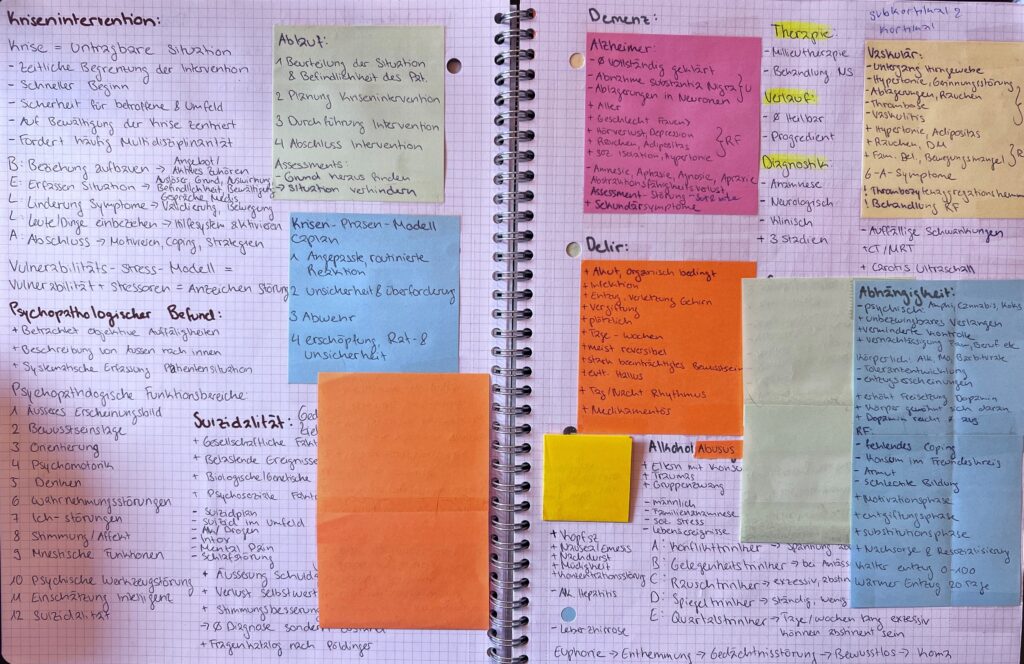 Krisenintervention:
Krise = untragbare Situation
- Zeitliche Begrenzung der Intervention
- Schneller Beginn
- Sicherheit für betroffene & Umfeld
- Auf Bewältigung der Krise zentriert
- Fördert häufig Multidisziplinarität
B: Beziehung aufbauen → Angebot/ Aktives Zuhören
E: Erfassen Situation → Auslöser, Grund, Auswirkung Befindlichkeit, Bewältigung
L: Linderung Symptome → Gespräche, Medis Validierung, Bewegung
L: Leute/Dinge einbeziehen → Hilfesystem aktivieren
A: Abschluss → Motivieren, Coping, Strategien
Vulnerabilitäts-Stress-Modell =
Vulnerabilität + Stressoren = Anzeichen Störung
Psychopathologischer Befund:
+ Betrachtet objektive Auffäligkeiten
+ Beschreibung von Aussen nach innen
+ Systematische Erfassung Patientensituation
Psychopathologische Funktionsbereiche:
1 Äusseres Erscheinungsbild
2 Bewusstseinslage
3 Orientierung
4 Psychomotorik
5 Denken
6 Wahrnehmungsstörungen
7 Ich-störungen
8 Stimmung/Affekt
9 Mnestische Funktionen
10 Psychische Werkzeugstörung
11 Einschätzung Intelligent
12 Suizidalität
Ablauf:
1 Beurteilung der Situation
& Befindlichkeit des Pat.
2 Planung Krisenintervention
3 Durchführung Intervention
4 Abschluss Intervention
Assessments:
- Grund heraus finden
→ Situation verhindern
Krisen-Phasen-Modell
Caplan
1 Angepasste, routinierte
Reaktion
2 unsicherheit & überforderung
3 Abwehr
4 erschöpfung, Rat- &
unsicherheit
Suizidalität:
+ Gesellschaftliche Fakt
+ Belastende Ereignisse
+ Biologische/Genetische
+ Psychosoziale Fakto
- Suizidplan
- Suizid im Umfeld
- Alk/Drogen
- Mental Pain
- Schlafstörung
+ Äusserung Schuld
+ Verlust Selbstwert
+ Stimmungsbesserung
→ Ø Diagnose sondern
+ Fragenkatalog nach Pöldinger
Demenz:
Alzheimer:
- Ø vollständig geklärt
- Abnahme substantia Nigra } U
- Ablagerungen in Neuronen
+ Alter
+ Geschlecht
+ Hörverlust, Depression } RF
+ Rauchen, Adipositas
+ soz. Isolation, Hypertonie
- Amnesie, Aphasie, Agnosie, Apraxie
Abstraktionsfähigkeitsverlust
Assessment-Störung
+ Sekundärsymptome
Therapie:
- Milieutherapie
- Behandlung NS
Verlauf:
- Ø Heilbar
- Progredient
Diagnostik:
- Anamnese
- Neurologisch
- Klinisch
+ 3 Stadien
subkortikal 2
kortikal 1
Vaskulär:
- Untergang Hirngewebe
- Hypertonie, Gerinnungsstörung
- Ablagerungen, Rauchen
- Thrombose
- Vaskulitis
+ Hypertonie, Adipositas
+ Rauchen, DM
+ Fam. Bel, Bewegungsmangel } RF
6-A-Symptome
! Thrombozytenaggregationshemm
! Behandlung RF
- Auffällige Schwankungen
+ CT/MRT
+ Carotis Ultraschall
Delir:
+ Akut, organisch bedingt
+ Infektion
+ Entzug, verletzung Gehirn
+ vergiftung
+ plötzlich
+ Tage - wochen
+ meist reversibel
+ stark beeinträchtigtes Bewusstsein
+ evt. Hallus
+ Tag/Nacht Rhythmus
+ Medikamentös
Abhängigkeit:
- psychisch: Amphi, Cannabis, Koks
+ unbezwingbares Verlangen
+ verminderte Kontrolle
+ vernachlässigung Fam, Beruf etc
Körperlich: Alk, Mo, Barbiturate
- Toleranzentwicklung
- entzugserscheinungen
+ erhöht Freisetzung Dopamin
+ Körper gewöhnt sich daran
+ Dopamin
RF:
- fehlendes Coping
- Konsum im Freundeskreis
- Armut
- Schlechte Bildung
+ Motivationsphase
+ entgiftungsphase
+ substitutionsphase
+ Nachsorge & Resozialisierung
Kalter entzug 0-100
Warmer Entzug 20 Tage
Alkohol Abusus
+ Eltern mit Konsu
+ Traumas
+ Gruppenzwang
- männlich
- Familienanamnese
- soz. stress
- Lebensereignisse
A: Konflikttrinker → Spannung
B: Gelegenheitstrinker → bei Anläss
C: Rauschtrinker → exzessiv, abstin
D: Spiegeltrinker → ständig, wenig
E: Quartalstrinker → Tage/wochen lang exzessiv
können abstinent sein
+ Kopfsz
+ Nausea/Emesis
+ Nachdurst
+ Müdigkeit
+ Konzentrationsstörung
- Alk. Hepatitis
- Leberzhirrose
Euphorie → Enthemmung → Gedächtnisstörung → Bewusstlos → Koma